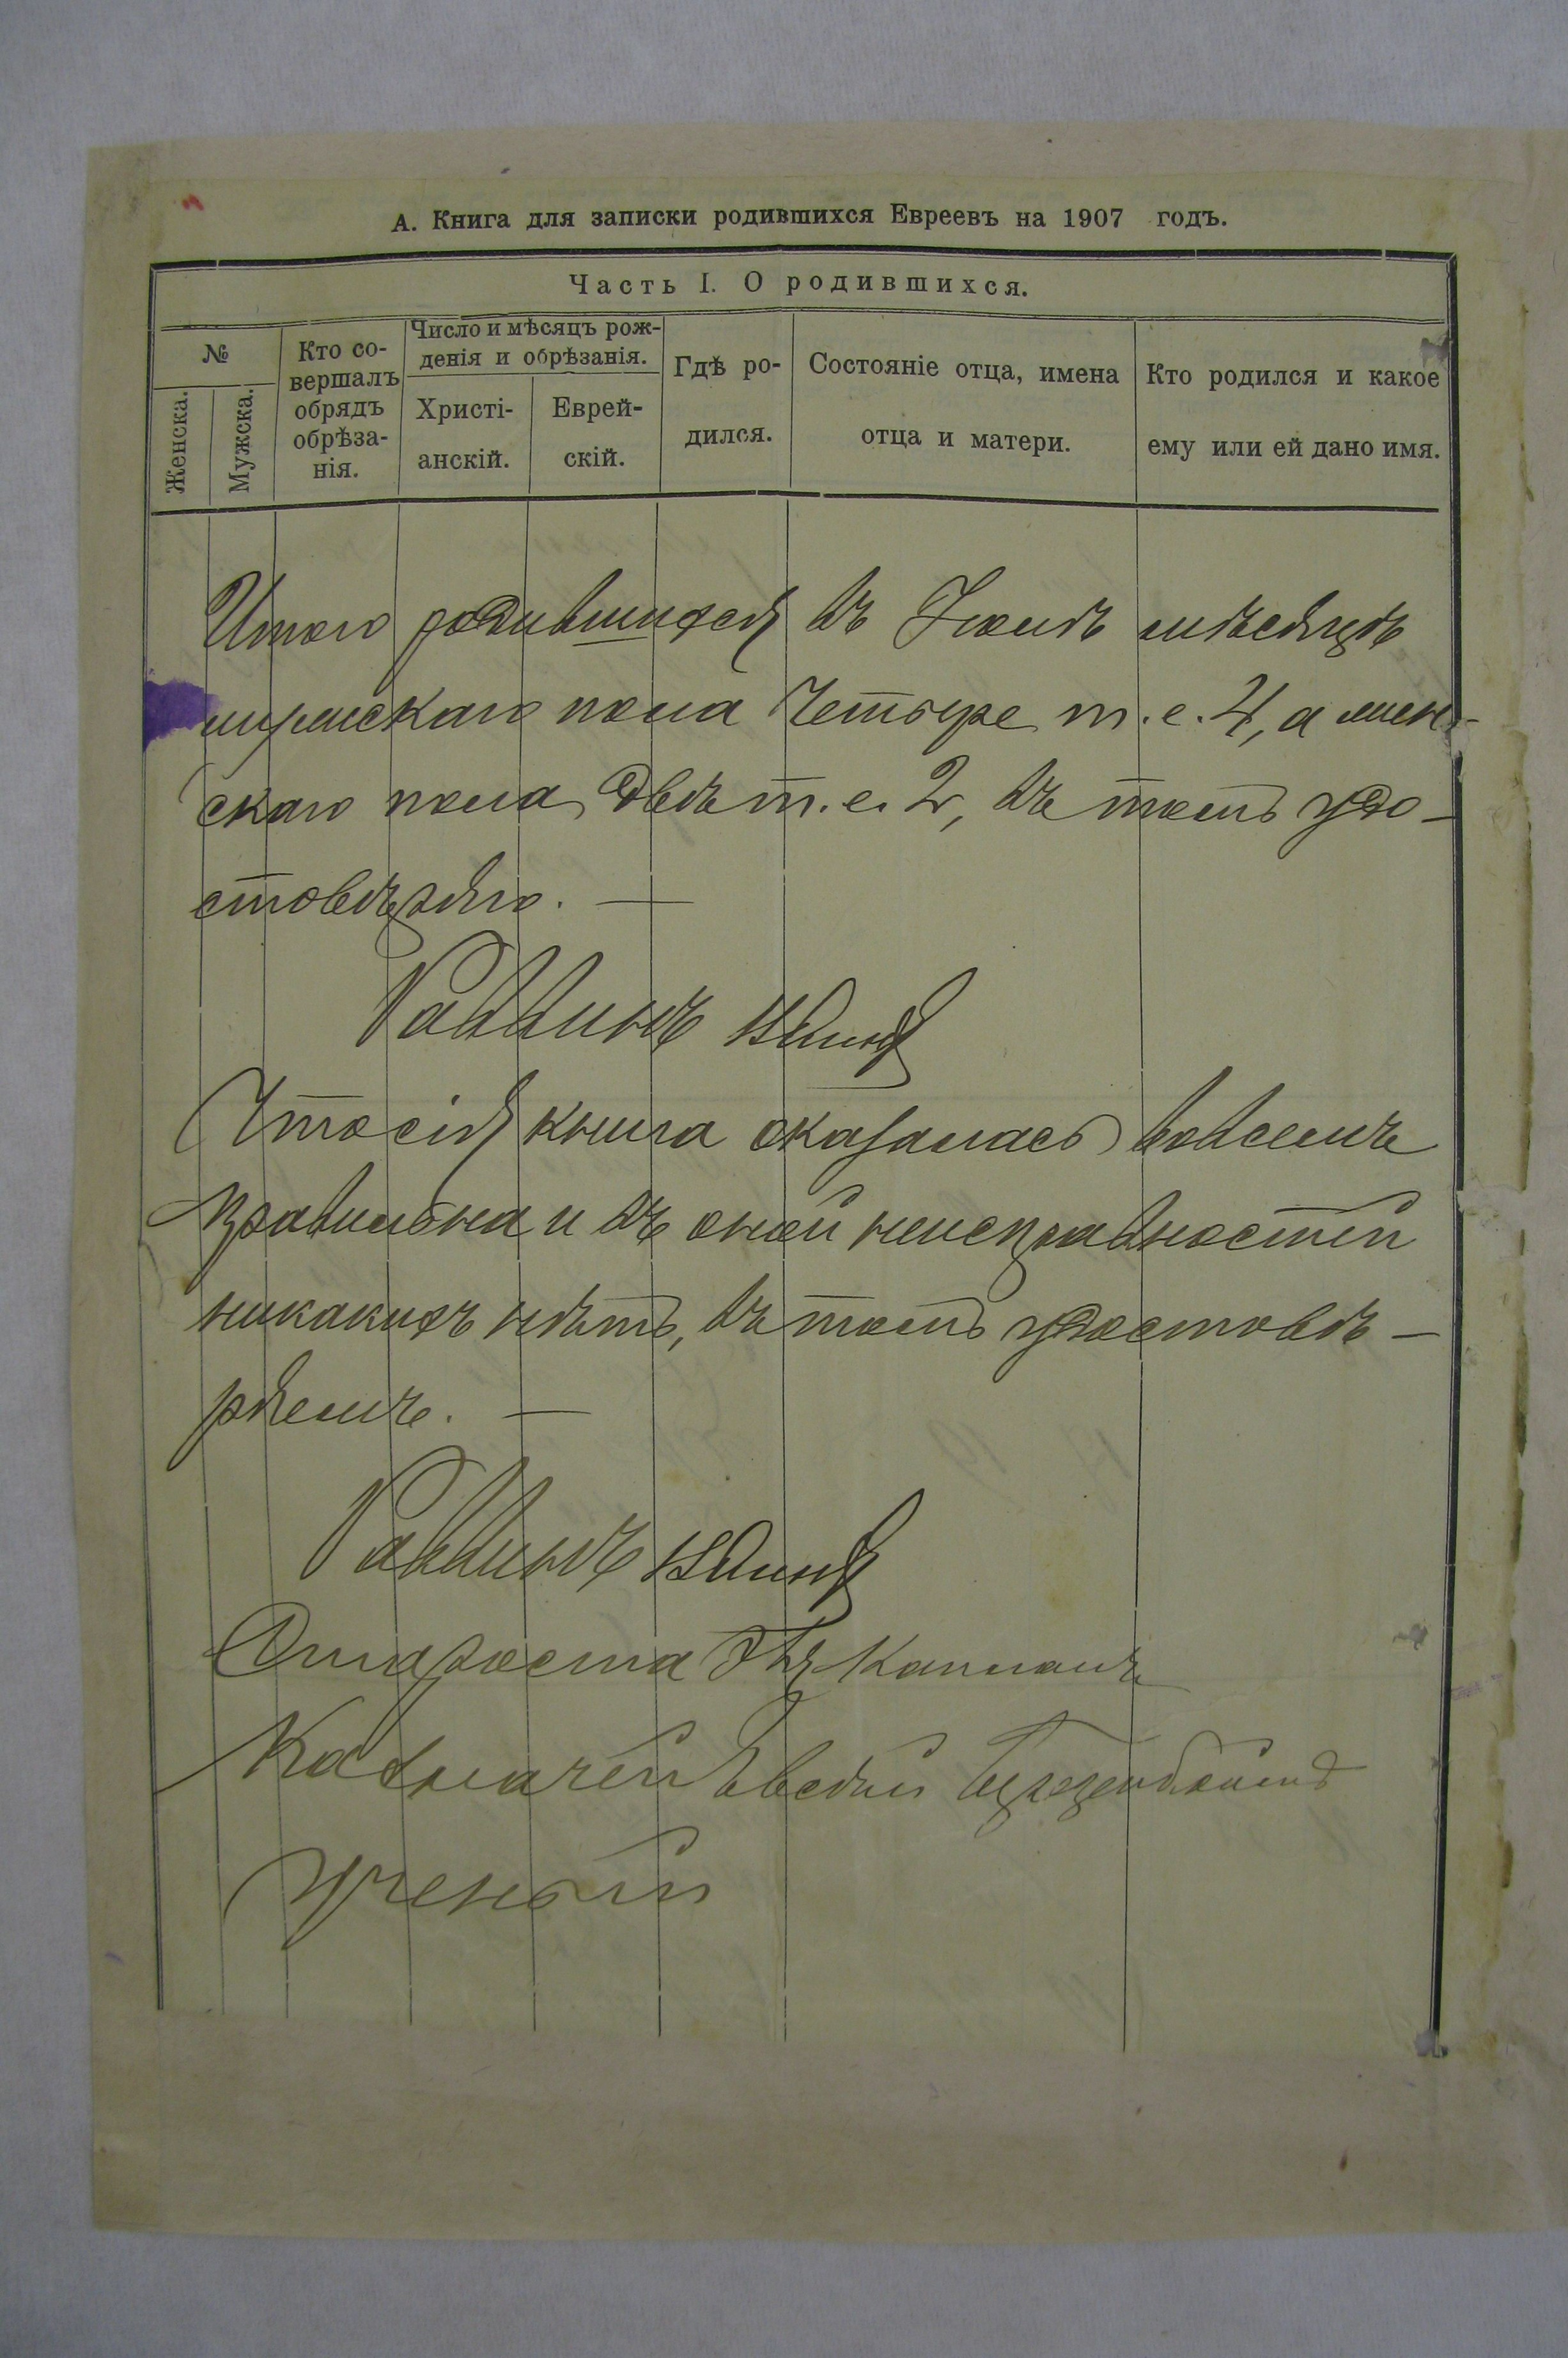 А. Книга для записки родившихся Евреевъ на 1907 годъ.
Часть I. О родившихся.
№
Женска.
Мужска.
Кто со-
вершалъ
обрядъ
обрѣза-
нія.
Число и мѣсяцъ рож-
денія и обрѣзанія.
Христі-
анскій.
Еврей-
скій.
Гдѣ ро-
дился.
Состояніе отца, имена
отца и матери.
Кто родился и какое
ему или ей дано имя.
Итого родившихся въ мѣсяцѣ
мужскаго пола четыре т.е. 4, а жен-
скаго пола двѣ т.е. 2, въ томъ удо-
стовѣряю. —
Раввинъ
Что сія книга оказалась во всемъ
правильна и въ оной неисправностей
никакихъ нѣтъ, въ томъ удостовѣ-
ряемъ. —
Раввинъ
Староста Капланъ
Казначей Евсѣй
Ученый